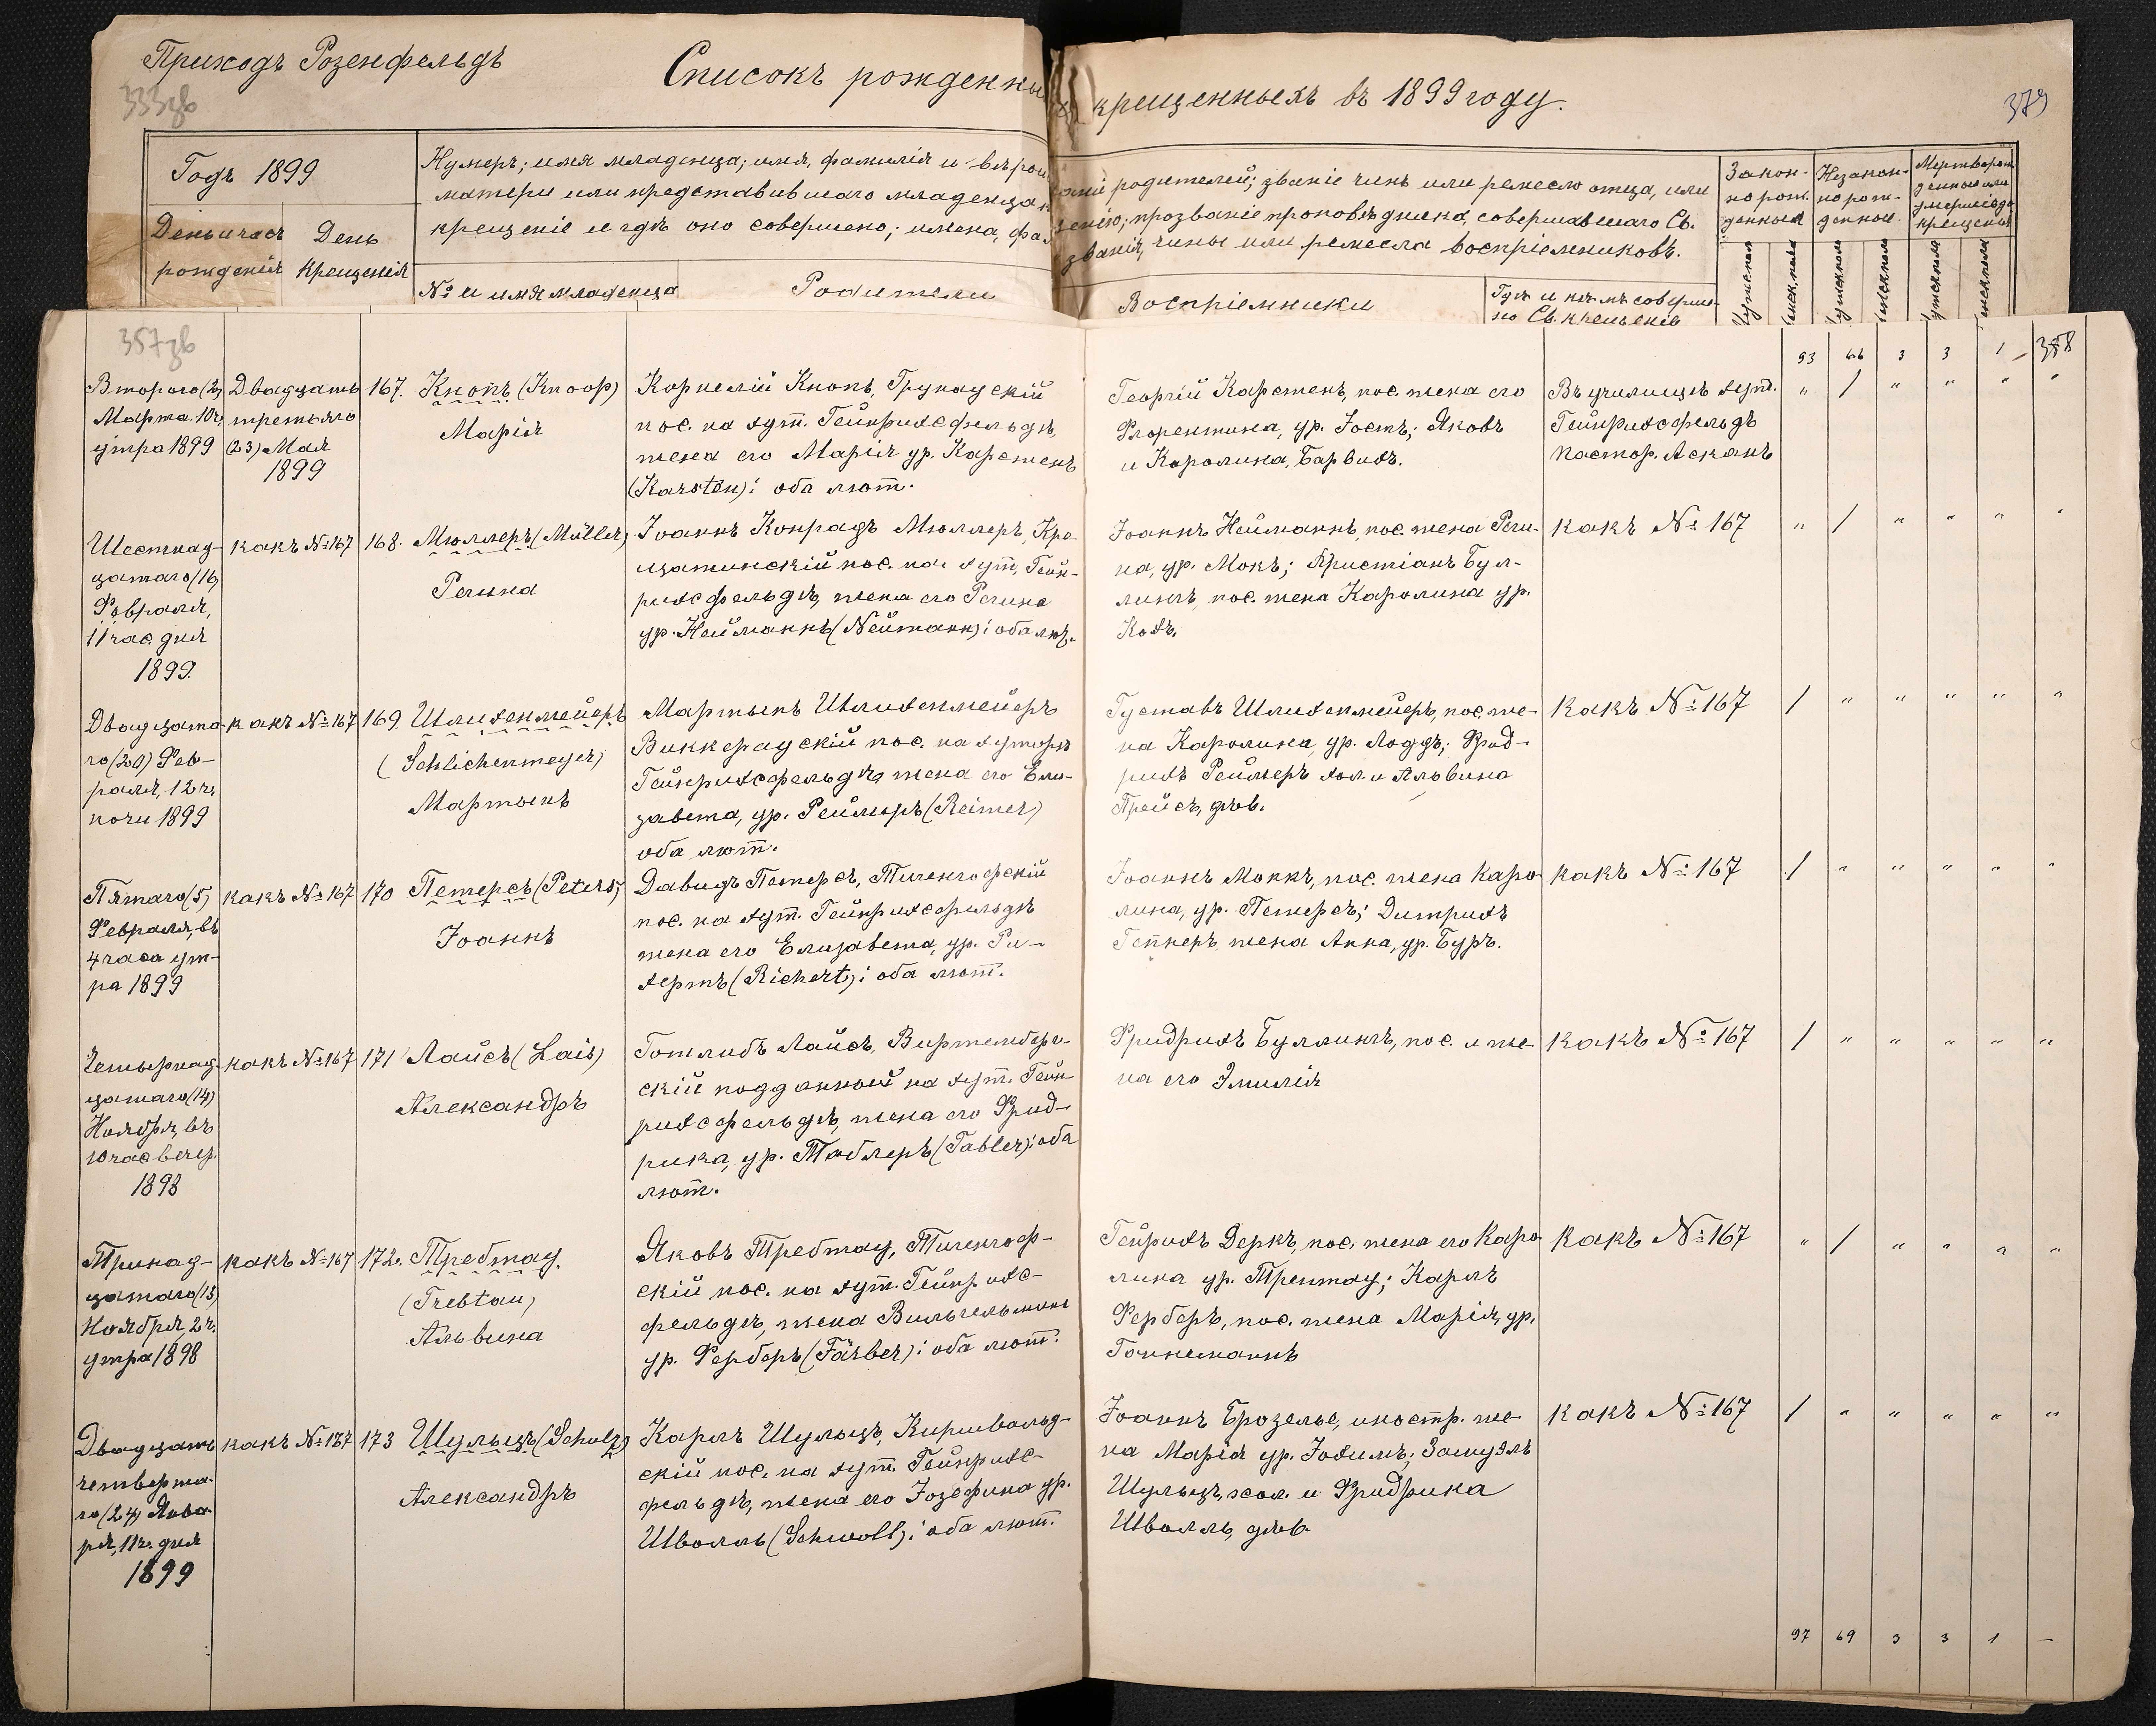 Приходъ Розенфельдъ
Списокъ рожденны
крещенныхъ въ 1899 году.
333зв
379
Годъ 1899
День и часъ рожденія
День крещенія
Нумеръ; имя младенца; имя, фамилія и вѣрои
матери или представившаго младенца
крещеніе и гдѣ оно совершено; имена, фа
родителей; званіе чинъ или ремесло отца, или
прозваніе проповѣдника, совершавшаго Св.
званія, чины или ремесла воспріемниковъ.
№ и имя младенца
Родители
Воспріемники
Гдѣ и кѣмъ соверше-
но Св. крещеніе
Закон-
но рож-
денные
Незакон-
но рож-
денные
Мертворож
денные или
умершіе до
крещенія
357зв
93 66 3 3 1 — 358
Второго (2)
Марта 10 ч.
утра 1899
Двадцать
третьяго
(23) Мая
1899
167. Кнопъ (Knoop)
Марія
Корнелій Кнопъ, Грунаускій
пос. на хут. Гейнрихсфельдѣ,
жена его Марія ур. Карстенъ
(Karsten); оба лют.
Георгій Карстенъ, пос. жена его
Флорентина, ур. Іостъ; Яковъ
и Каролина, Барвихъ.
Въ училищѣ хут.
Гейнрихсфельдъ
Пастор. Асканъ
" / " " " "
Шестнад-
цатаго (16)
Февраля,
11 час. дня
1899.
какъ №167
168. Мюллеръ (Müller)
Регина
Іоаннъ Конрадъ Мюллеръ, Кре-
щатинскій пос. на хут. Гейн-
рихсфельдѣ, жена его Регина
ур. Нейманнъ (Neumann); оба лют.
Іоаннъ Нейманнъ, пос. жена Реги-
на, ур. Мокъ; Христіанъ Бул-
лингъ, пос. жена Каролина ур.
Кохъ.
какъ № 167
" / " " " "
Двадцата-
го (20) Фев-
раля, 12 ч.
ночи 1899
какъ №167
169. Шлихенмейеръ
(Schlichenmeyer)
Мартынъ
Мартынъ Шлихенмейеръ
Виккераускій пос. на хуторѣ
Гейнрихсфельдѣ, жена его Ели-
завета, ур. Реймеръ (Reimer)
оба лют.
Густавъ Шлихенмейеръ, пос. же-
на Каролина, ур. Лоддъ; Фрид-
рихъ Реймеръ хол. и Альвина
Прейсъ, дѣв.
какъ № 167
/ " " " " "
Пятаго (5)
Февраля, въ
4 часа ут-
ра 1899
какъ №167
170 Петерсъ (Peters)
Іоаннъ
Давидъ Петерсъ, Тигенгофскій
пос. на хут. Гейнрихсфельдѣ
жена его Елизавета, ур. Ри-
хертъ (Richert); оба лют.
Іоаннъ Моккъ, пос. жена Каро-
лина, ур. Петерсъ; Дитрихъ
Геннеръ, жена Анна, ур. Буръ.
какъ № 167
/ " " " " "
Четырнад-
цатаго (14)
Ноября, въ
10 час. вечер.
1898
какъ №167
171 Лайсъ (Lais)
Александръ
Готлибъ Лайсъ, Виртемберг-
скій подданный на хут. Гейн-
рихсфельдѣ, жена его Фрид-
рика, ур. Таблеръ (Tabler); оба
лют.
Фридрихъ Буллингъ, пос. и же-
на его Эмилія
какъ № 167
/ " " " " "
Тринад-
цатаго (13)
Ноября, 2 ч.
утра 1898
какъ №167
172. Требтау.
(Trebtau)
Альвина
Яковъ Требтау, Тигенгоф-
скій пос. на хут. Гейнрихс-
фельдѣ, жена Вильгельмина
ур. Ферберъ (Färber); оба лют.
Гейрихъ Деркъ, пос. жена его Каро-
лина ур. Трептау; Карлъ
Ферберъ, пос. жена Марія, ур.
Ганнеманнъ
какъ № 167
" / " " " "
Двадцать
четверта-
го (24) Янва-
ря, 11 ч. дня
1899
какъ №167
173 Шульцъ (Schulz)
Александръ
Карлъ Шульцъ, Киршвальд-
скій пос. на хут. Гейнрихс-
фельдѣ, жена его Іозефина ур.
Шволль (Schwoll); оба лют.
Іоаннъ Брозелье, иностр. же-
на Марія ур. Іохимъ; Замуэль
Шульцъ, хол. и Фридрика
Шволль, дѣв.
какъ № 167
/ " " " " "
97 69 3 3 1 —